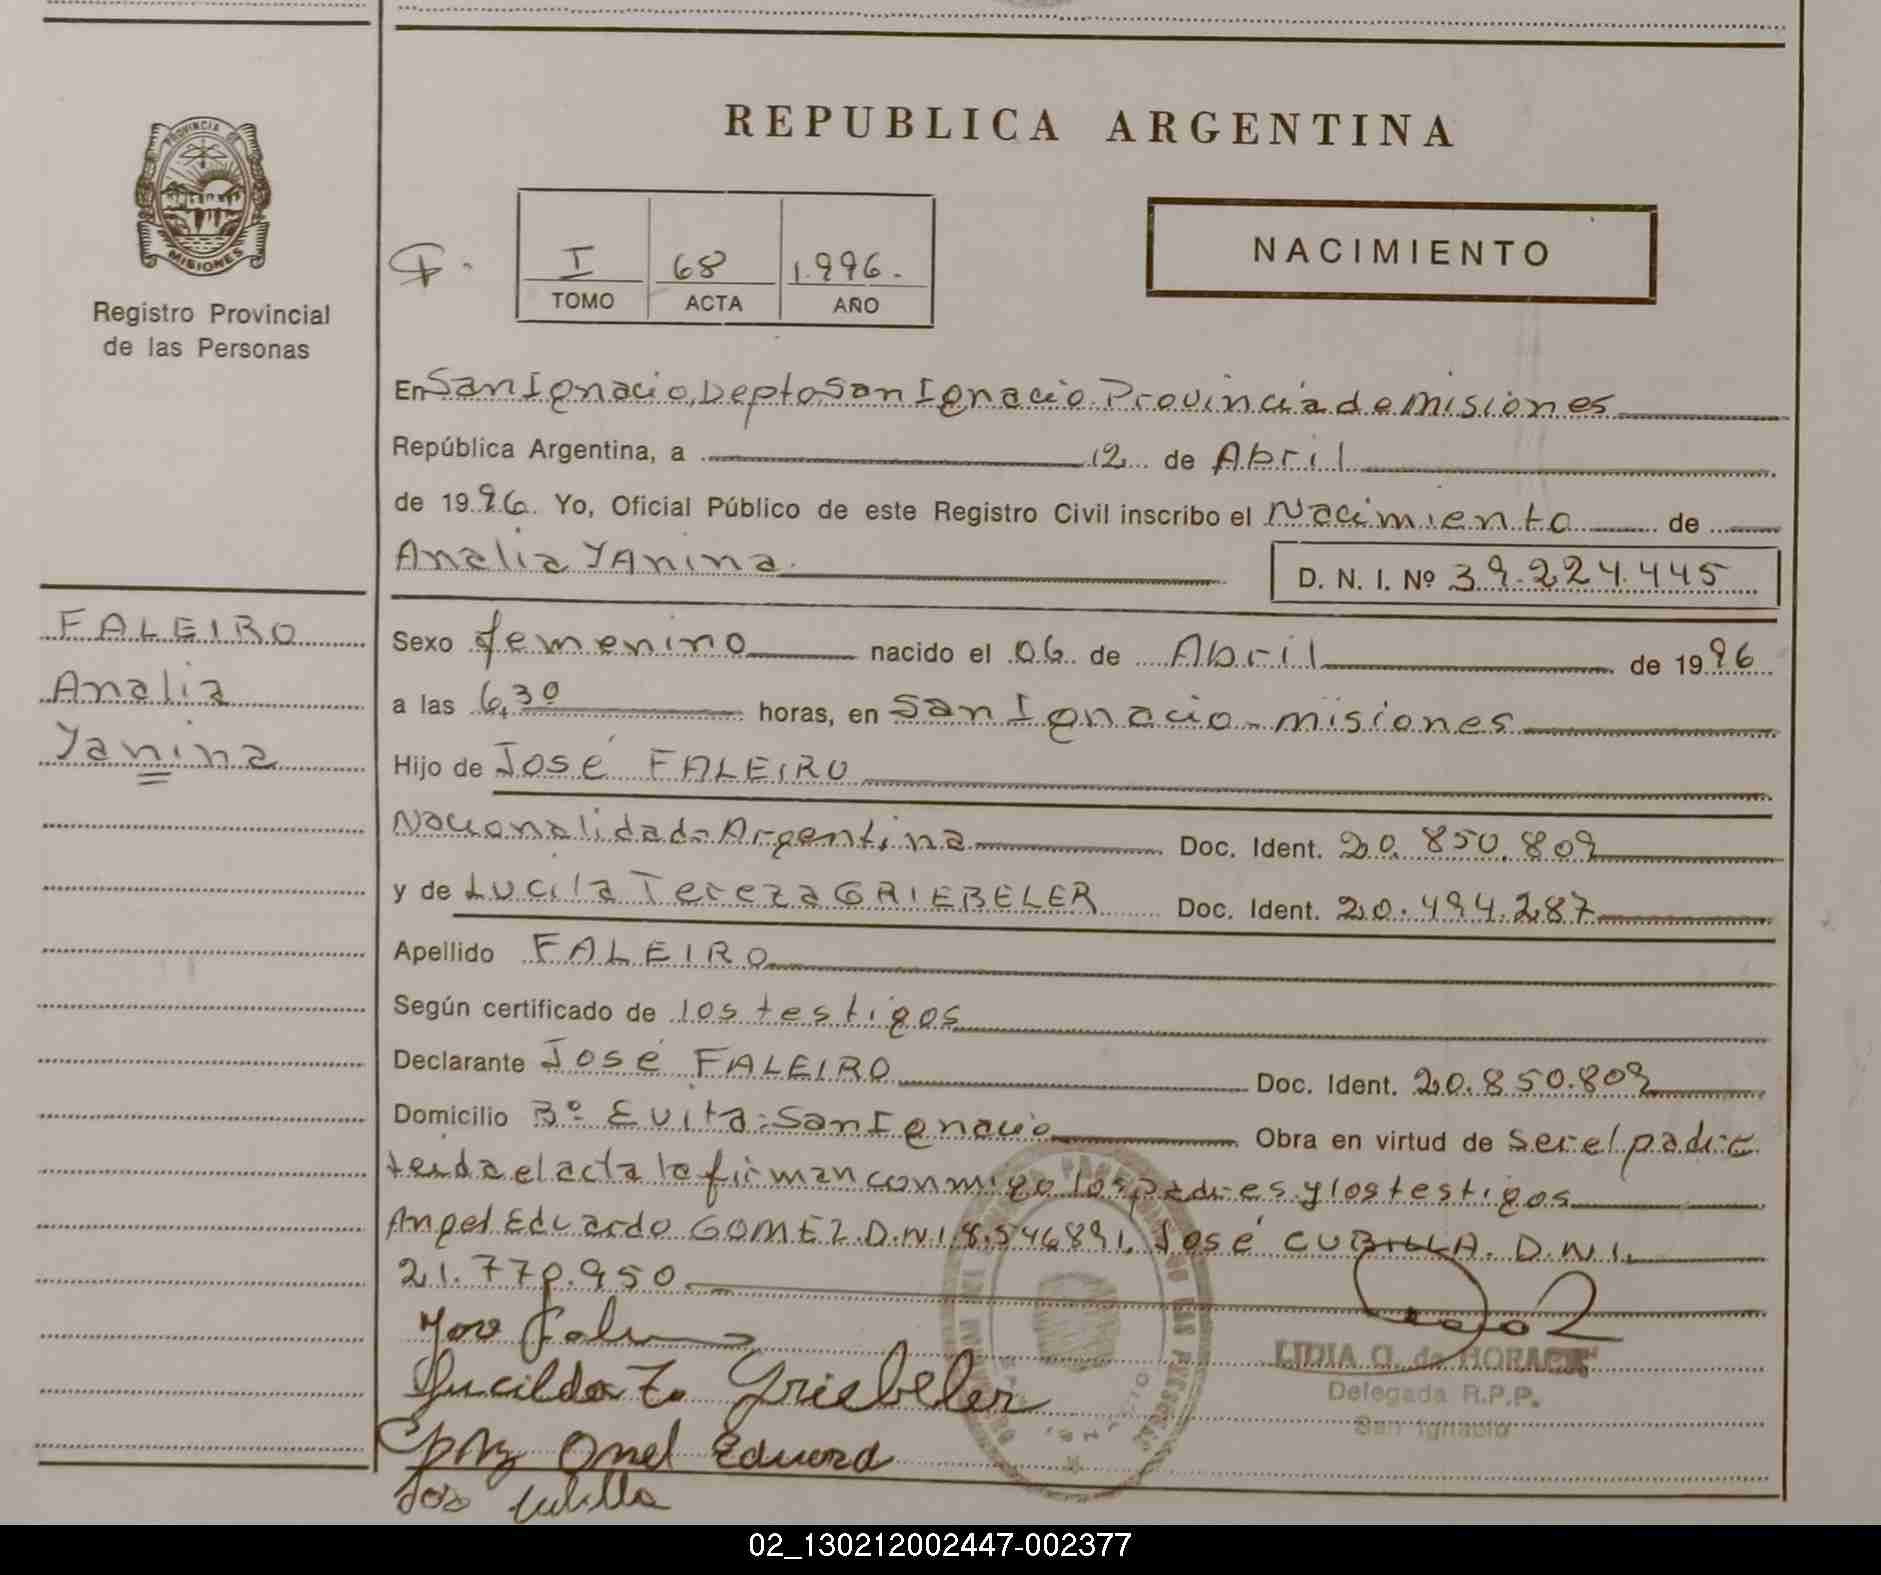 REPUBLICA ARGENTINA
PROVINCIA DE
MISIONES
Registro Provincial
de las Personas
I 68 1.996.
TOMO ACTA AÑO
NACIMIENTO
En San Ignacio, Depto San Ignacio. Provincia de Misiones
República Argentina, a 12 de Abril
de 1996. Yo, Oficial Público de este Registro Civil inscribo el Nacimiento de
Analia YAnina. D. N. I. Nº 39.224.445
FALEIRO
Analia
Yanina
Sexo femenino nacido el 06 de Abril de 1996
a las 6,30 horas, en San Ignacio - misiones
Hijo de José FALEIRO
Nacionalidad Argentina Doc. Ident. 20.850.809
y de Lucila Tereza GRIEBELER Doc. Ident. 20.494.287
Apellido FALEIRO
Según certificado de los testigos
Declarante José FALEIRO Doc. Ident. 20.850.809
Domicilio Bº Evita - San Ignacio Obra en virtud de ser el padre
leida el acta la firman conmigo los padres y los testigos
Angel Eduardo GOMEZ. D.N.I. 8.546891. José CUBILLA. D.N.I.
21.770.950
Griebeler
Eduard
LIDIA G. de
Delegada R.P.P.
San Ignacio
02_130212002447-002377